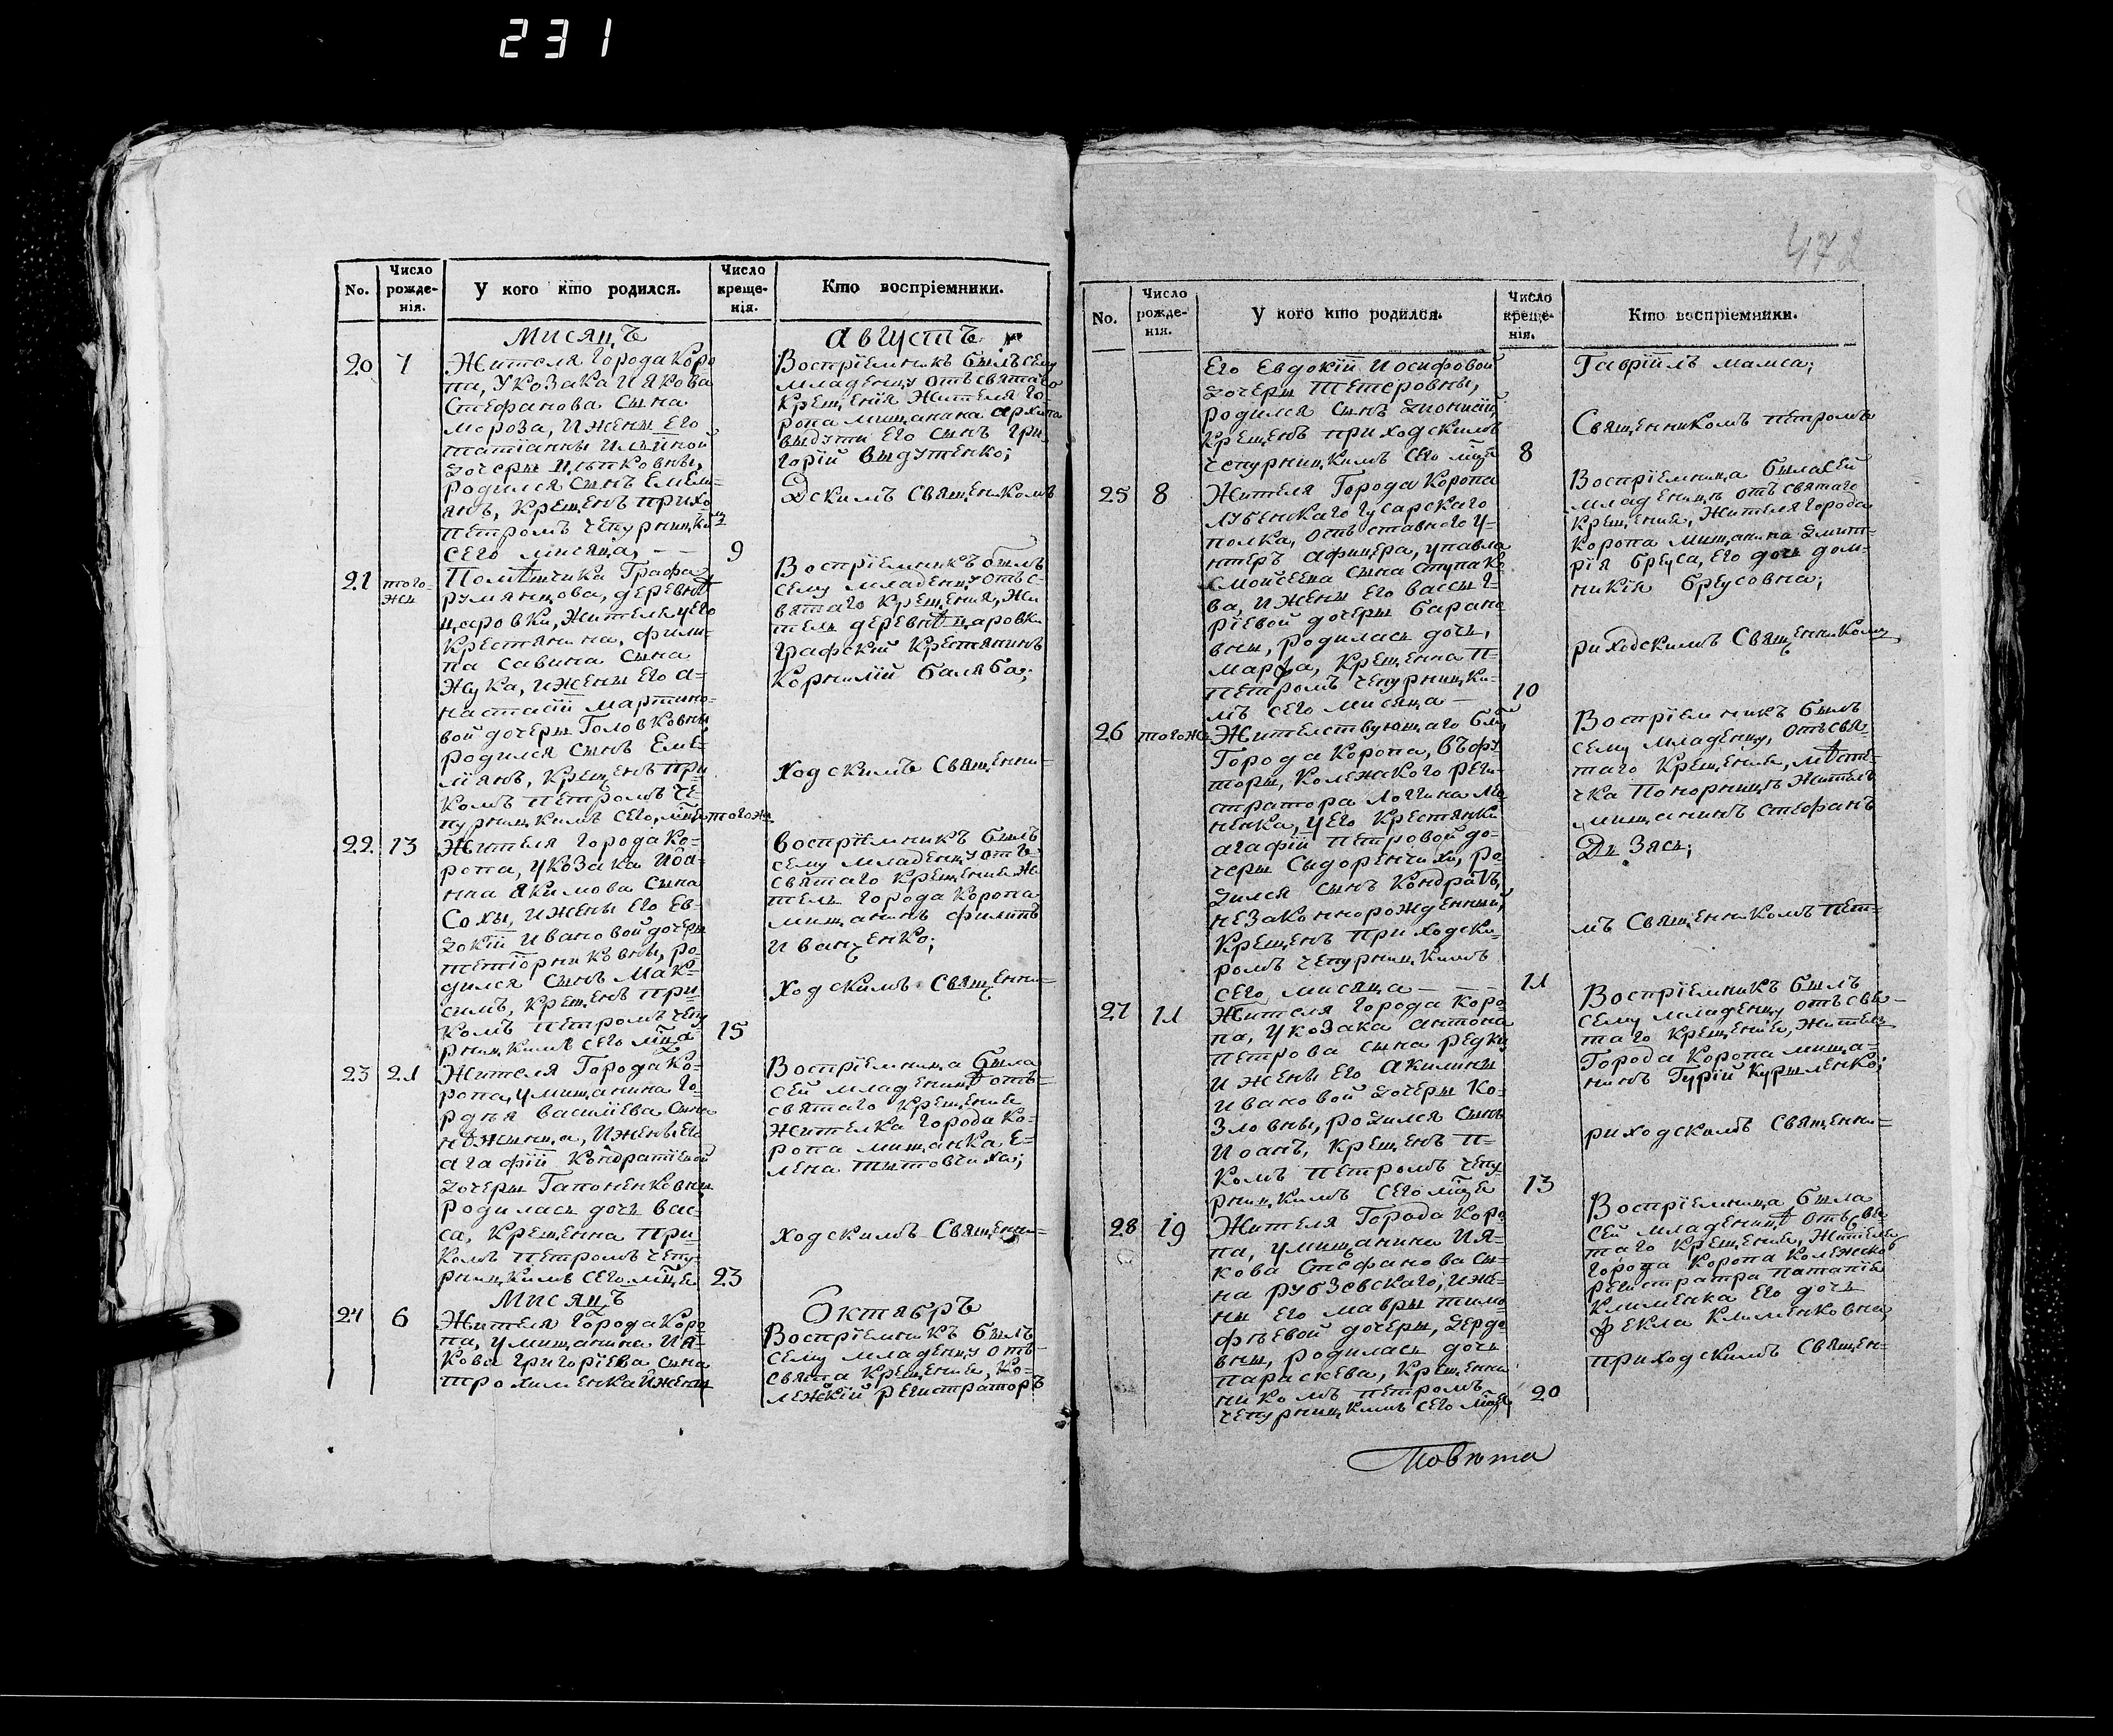 231
472
No.
Число рожде-нія.
У кого кто родился.
Число креще-нія.
Кто воспріемники.
Мисяцъ
Августъ
20 7
Жителя Города Коро
па, У Козака Иякова
Стефанова Сына
Мороза, И Жены Его
татіанны Ильиной
дочеры Ильтковны,
родился Сынъ Емели=
янъ, Крещенъ прихо
петромъ Чепурницки
Сего мисяца,
9
Воспріемникъ былъ сему
младенцу отъ святаго
Крещенія Жителя Го-
ропа мищанина
Его Сынъ Гри
горій Выдутенко;
дскимъ Священикомъ
21 того-же
Помѣшчика Графа
румянцова, деревнѣ
царовки, Жителя у Его
Крестянина, фили-
па Савина Сына
Жука, и Жены Его а-
настасіи Мартино-
вой дочеры Головковны
родился Сынъ Еме-
ліянъ, Крещенъ при
Комъ петромъ Че-
пурницкимъ сего, мцѣ
того же
Воспріемникъ былъ
сему младенцу отъ с-
вятаго Крещения, Жи
тель деревнѣ царовки
графский Крестянинъ
Корнилій баляба;
ходскимъ Священни=
22 13
Жителя города Ко-
ропа, у Козака Иоа-
нна Якимова Сына
Сохы, и Жены Его Ев-
докіи Ивановой дочеры
родился Сынъ Мак-
симъ, Крещенъ при-
Комъ петромъ Чепу
рницкимъ Сего мца
15
воспріемникъ былъ
сему младенцу отъ
святаго Крещение Жи
тель города Коропа
мищанинъ филипъ
Иванченко;
ходскимъ Священни=
23 21
Жителя Города Ко-
ропа, у мищанина Го-
рдѣя василіева Сына
нѣжинца, и жены Его
агафіи Кондратіевой
дочеры Гапоненковны
родилась дочь вас-
са, Крещенна При-
Комъ петромъ Чепу-
рницкимъ Сего мцѣ
23
Воспріемница была
сей младеницѣ отъ-
святаго Крещение
жителка города Ко-
ропа мищанка Е=
лена тытовчиха;
ходскимъ Священни=
Мисяцъ
Октябръ
24 6
Жителя Города Коро-
па, у мищанина Ия-
кова Григоріева Сына
трохименка и жены
Воспріемникъ былъ
сему младенцу отъ-
свята Крещение, Ко-
лежскій регистраторъ
No.
Число рожде-нія.
У кого кто родился.
Число креще-нія.
Кто воспріемники.
Его Евдокіи Иосифовой
дочеры тетеровны,
родился Сынъ Дионисій
Крещенъ приходскимъ
Чепурницкимъ сего мцѣ
8
Гавріилъ мамса;
Священникомъ петромъ
25 8
Жителя Города Коропа
Лубенскаго гусарскаго
полка, отъставного у-
нтеръ афицера, у павла
Моисеева Сына ступако
ва, и Жены Его вассы г-
ріевой дочеры барано
вны, родилась дочь,
марфа, Крещенна п-
петромъ Чепурницки-
мъ сего мисяца
10
Воспріемница была сей
младеницѣ отъ святаго
Крещение, Жителя города
Коропа мищанина Дмит-
рія бреуса, Его дочь дом-
никія бреусовна;
риходскимъ Священикомъ
26 того же
Жителствующаго
Города Коропа, въ фу
торы, Колежского реги-
стратора Логгина
ненка, у Его Крестянки
агафіи петровой до-
черы Сыдоренчихи, ро
дился Сынъ Кондратъ,
незаконнорожденный,
Крещенъ приходски-
ромъ Чепурницкимъ
сего мисяца
11
Воспріемникъ былъ
сему младенцу, отъ свя-
таго Крещение, мѣсте-
чка Понорницъ житель
мищанинъ стефанъ
мъ Священикомъ пет=
27 11
Жителя города Коро-
па, у козака антона
петрова сына редки
и жены его акилины
Ивановой дочеры Ко-
зловны, родился Сынъ
Иоанъ, Крещенъ п-
Комъ петромъ Чепу-
рницкимъ сего мцѣ
13
Воспріемникъ былъ
сему младенцу отъ свя-
таго Крещение, житель
города Коропа мища-
нинъ Гурій Курыленко;
риходскимъ Священни=
28 19
Жителя Города Коро-
па, у мищанина Ия-
кова Стефанова сы-
на рубзевскаго, и же-
ны Его мавры тимо
фѣевой дочеры, дердо
вны, родилась дочь
параскева, Крещенна
никомъ петромъ
Чепурницкимъ сего мцѣ
20
Воспріемница была
сей младеницѣ отъ свя
таго Крещение, жителя
города Коропа Колежског
регистратра патапія
Клименка Его дочь
фекла Клименковна;
приходскимъ Священ-
Повѣта